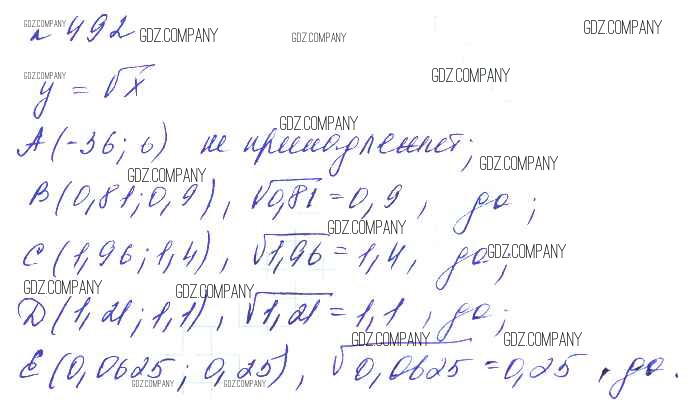 GDZ.COMPANY
№ 492 GDZ.COMPANY GDZ.COMPANY GDZ.COMPANY
GDZ.COMPANY GDZ.COMPANY
y = √x
GDZ.COMPANY
A(-36; 6) не принадлежит;
GDZ.COMPANY GDZ.COMPANY
B(0,81; 0,9), √0,81 = 0,9, да;
GDZ.COMPANY
C(1,96; 1,4), √1,96 = 1,4, да;
GDZ.COMPANY
GDZ.COMPANY GDZ.COMPANY
D(1,21; 1,1), √1,21 = 1,1, да;
GDZ.COMPANY GDZ.COMPANY
E(0,0625; 0,25), √0,0625 = 0,25, да.
GDZ.COMPANY GDZ.COMPANY